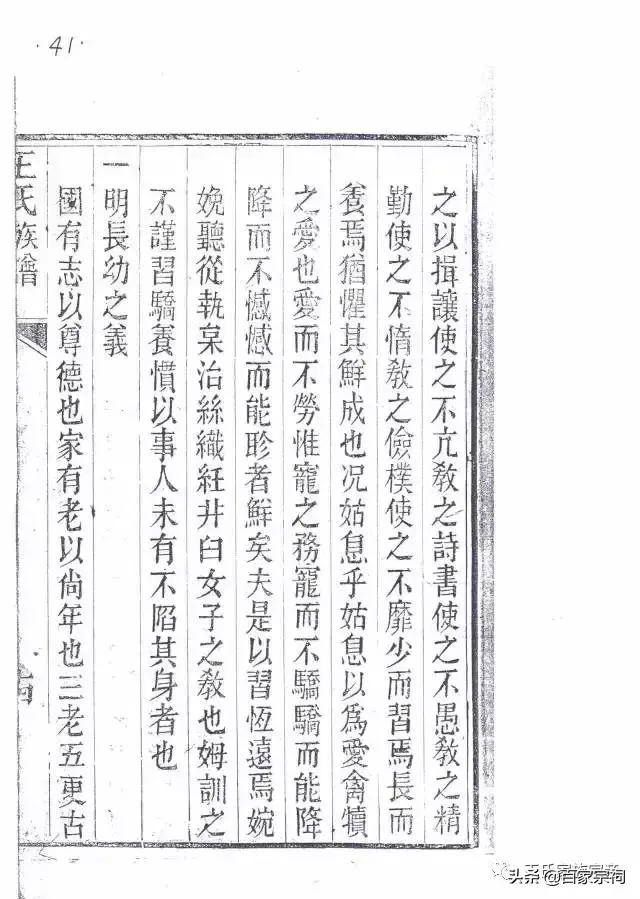 ·41·
之以揖讓使之不亢教之詩書使之不愚教之精
勤使之不惰教之儉樸使之不靡少而習焉長而
養焉猶懼其鮮成也况姑息乎姑息以爲愛禽犢
之愛也愛而不勞惟寵之務寵而不驕驕而能降
降而不憾憾而能眕者鮮矣夫是以習恆遠焉婉
娩聽從執枲治絲織紝井臼女子之教也姆訓之
不謹習驕養慣以事人未有不陷其身者也
一明長幼之義
國有志以尊德也家有老以尙年也三老五更古
王氏族譜
头条 @百家宗祠